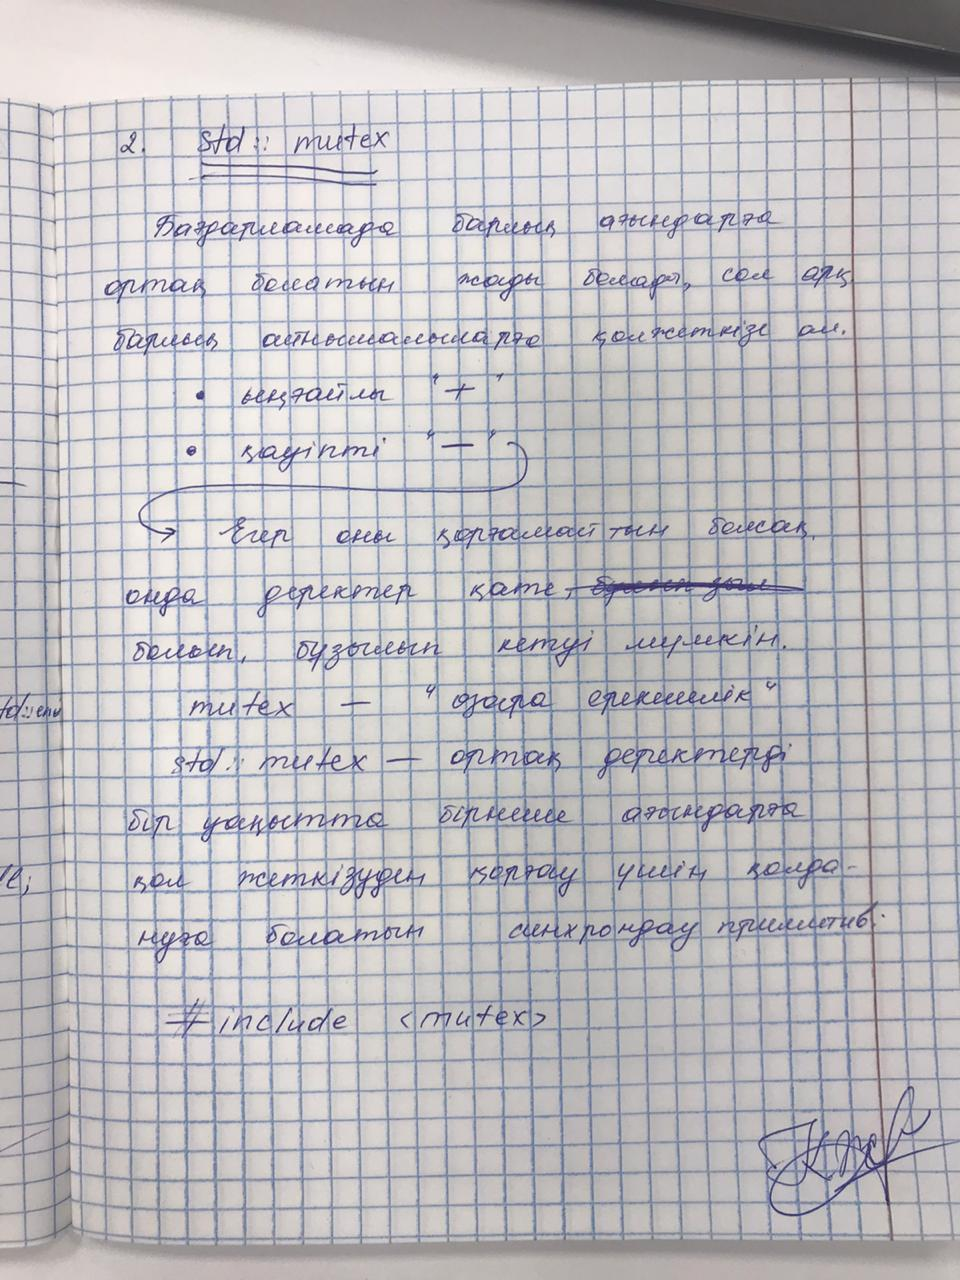 2. std:: mutex
Бағдарламада барлық ағындарға
ортақ болатын жады болады, сол арқ.
барлық айнымалыларға қолжеткізе ал.
• ыңғайлы "+"
• қауіпті "—"
Егер оны қорғамайтын болсақ,
онда деректер қате,
болып, бұзылып кетуі мүмкін.
mutex — "өзара ерекшелік"
std:: mutex — ортақ деректерді
бір уақытта бірнеше ағындарға
қол жеткізуден қорғау үшін қолда-
нуға болатын синхрондау примитив.
#include <mutex>